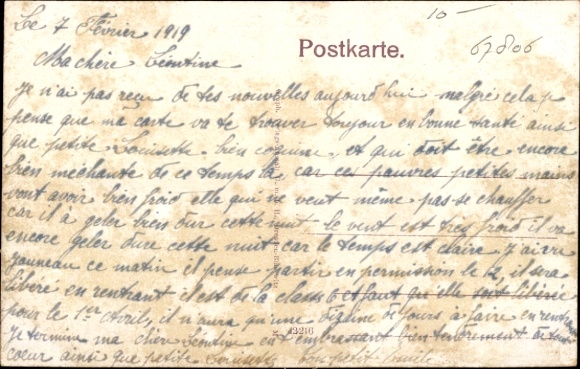 10 -
67806
Le 7 Février 1919
Postkarte.
Ma chère Léontine
Je n'ai pas reçu de tes nouvelles aujourd'hui malgré cela je
pense que ma carte va te trouver toujour en bonne santé ainsi
que petite Louisette bien coquine et qui doit être encore
bien méchante de ce temps là car ces pauvres petites mains
vont avoir bien froid elle qui ne veut même pas se chauffer
car il a geler bien dur cette nuit le vent est tres froid il va
encore geler dure cette nuit car le temps est claire J'ai vu
ce matin il pense partir en permission le 12, il sera
libéré en rentrant il est de la class 6 et faut qu'elle soit libérée
pour le 1er Avril, il n'aura qu'une dizaine de jours à faire en rentrant
Je termine ma chère Léontine en t'embrassant bien tendrement de tout
coeur ainsi que petite Louisette ton petit Emile
42216